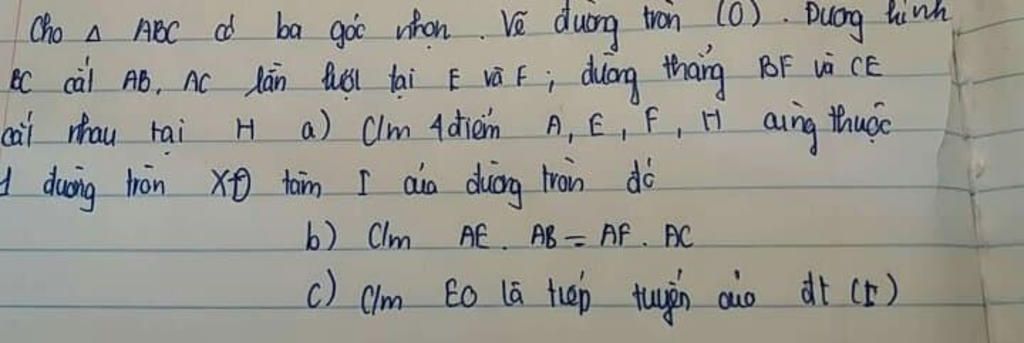 Cho Δ ABC có ba góc nhọn. Vẽ đường tròn (O). Đường kính
BC cắt AB, AC lần lượt tại E và F; đường thẳng BF và CE
cắt nhau tại H a) C/m 4 điểm A, E, F, H cùng thuộc
1 đường tròn XĐ tâm I của đường tròn đó
b) C/m AE. AB = AF. AC
c) C/m EO là tiếp tuyến của đt (I)